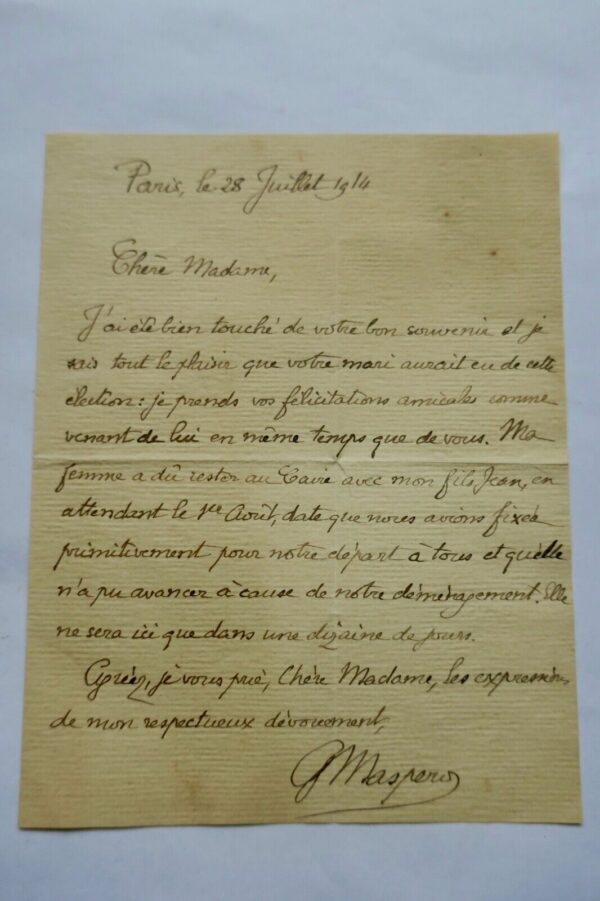 Paris, le 28 Juillet 1914
Chère Madame,
J'ai été bien touché de votre bon souvenir et je
sais tout le plaisir que votre mari aurait eu de cette
élection: je prends vos félicitations amicales comme
venant de lui en même temps que de vous. Ma
femme a dû rester au Caire avec mon fils Jean, en
attendant le 1er Août, date que nous avions fixée
primitivement pour notre départ à tous et qu'elle
n'a pu avancer à cause de notre déménagement. Elle
ne sera ici que dans une dizaine de jours.
Agréez, je vous prie, Chère Madame, les expressions
de mon respectueux dévouement,
G Maspero